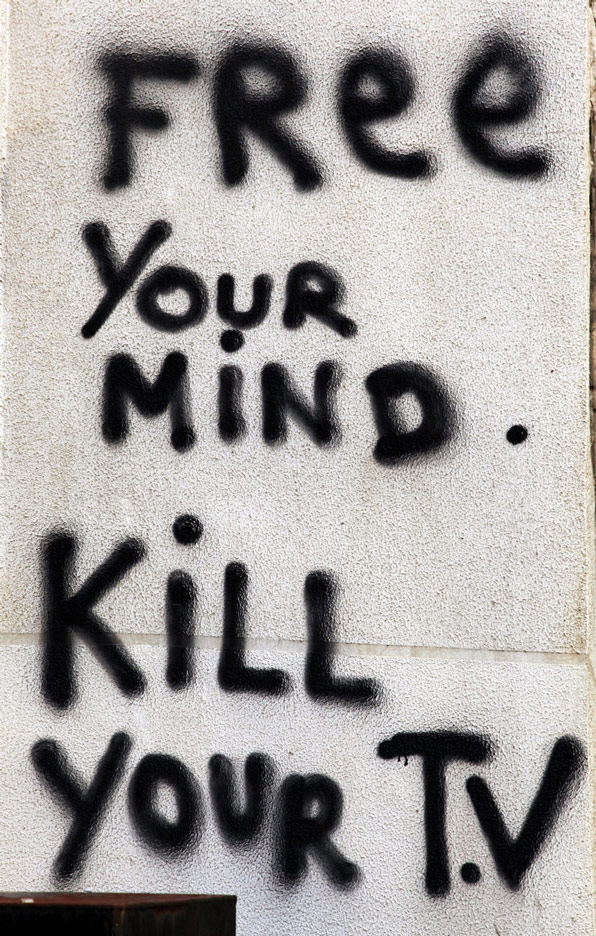 FRee
YOUR
MiND.
KiLL
YOUR T.V